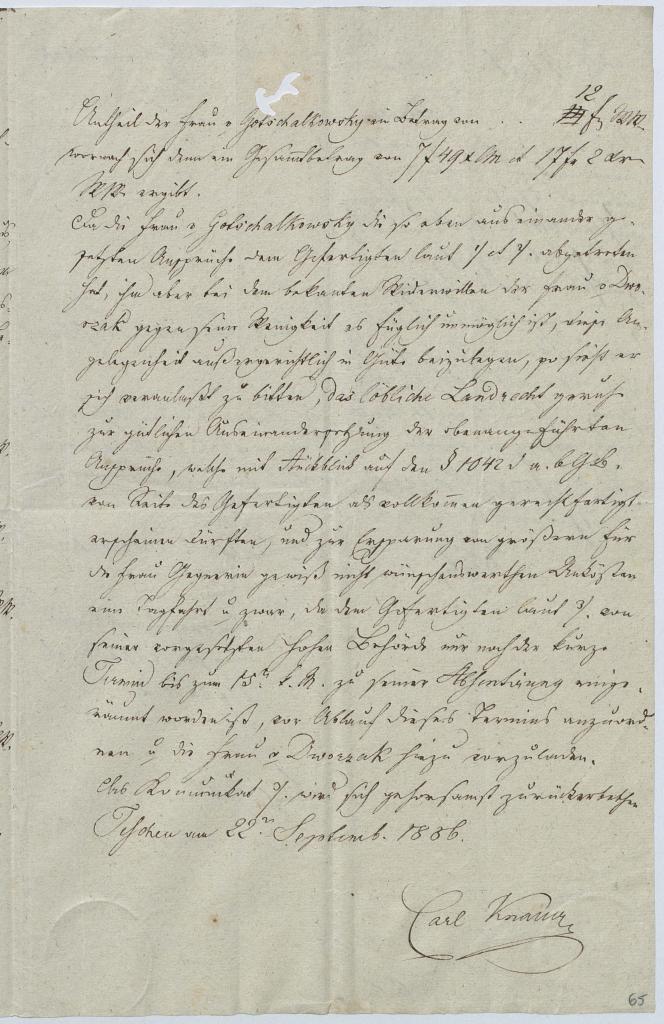 12
Antheil der Frau v Gotschalkowsky im Betrag von . . f WW.
wornach sich denn ein Gesammtbetrag von 7 f 49 x CM et 17 f 2 xr
WW. ergibt.
Da die Frau v Gotschalkowsky die so eben auseinander ge-
setzten Ansprüche dem Gefertigten laut ·/· et ·/· abgetreten
hat, ihm aber bei dem bekanten Widerwillen der Frau v Dwo-
rzak gegen seine Wenigkeit es füglich unmöglich ist, diese An-
gelegenheit außergerichtlich in Güte beizulegen, so sieht er
sich veranlaßt zu bitten, das löbliche Landrecht geruhe
zur gütlichen Auseinandersetzung der obenangeführten
Ansprüche, welche mit Rückblick auf den § 1042 d a. b. G. B.
von Seite des Gefertigten als vollkommen gerechtfertigt
erscheinen dürften, und zur Ersparung von größern für
die Frau Gegnerin gewiß nicht wünschenswerthen Unkösten
eine Tagfahrt u zwar, da dem Gefertigten laut ·/· von
seiner vorgesetzten hohen Behörde nur noch der kurze
Termin bis zum 15n k. M. zu seiner einge-
räumt worden ist, vor Ablauf dieses Termins anzuord-
nen u die Frau v Dworzak hiezu vorzuladen.
Das Komunikat ·/· wird sich gehorsamst zurückerbethen
Teschen am 22n Septemb. 1836.
Carl Knaur
65